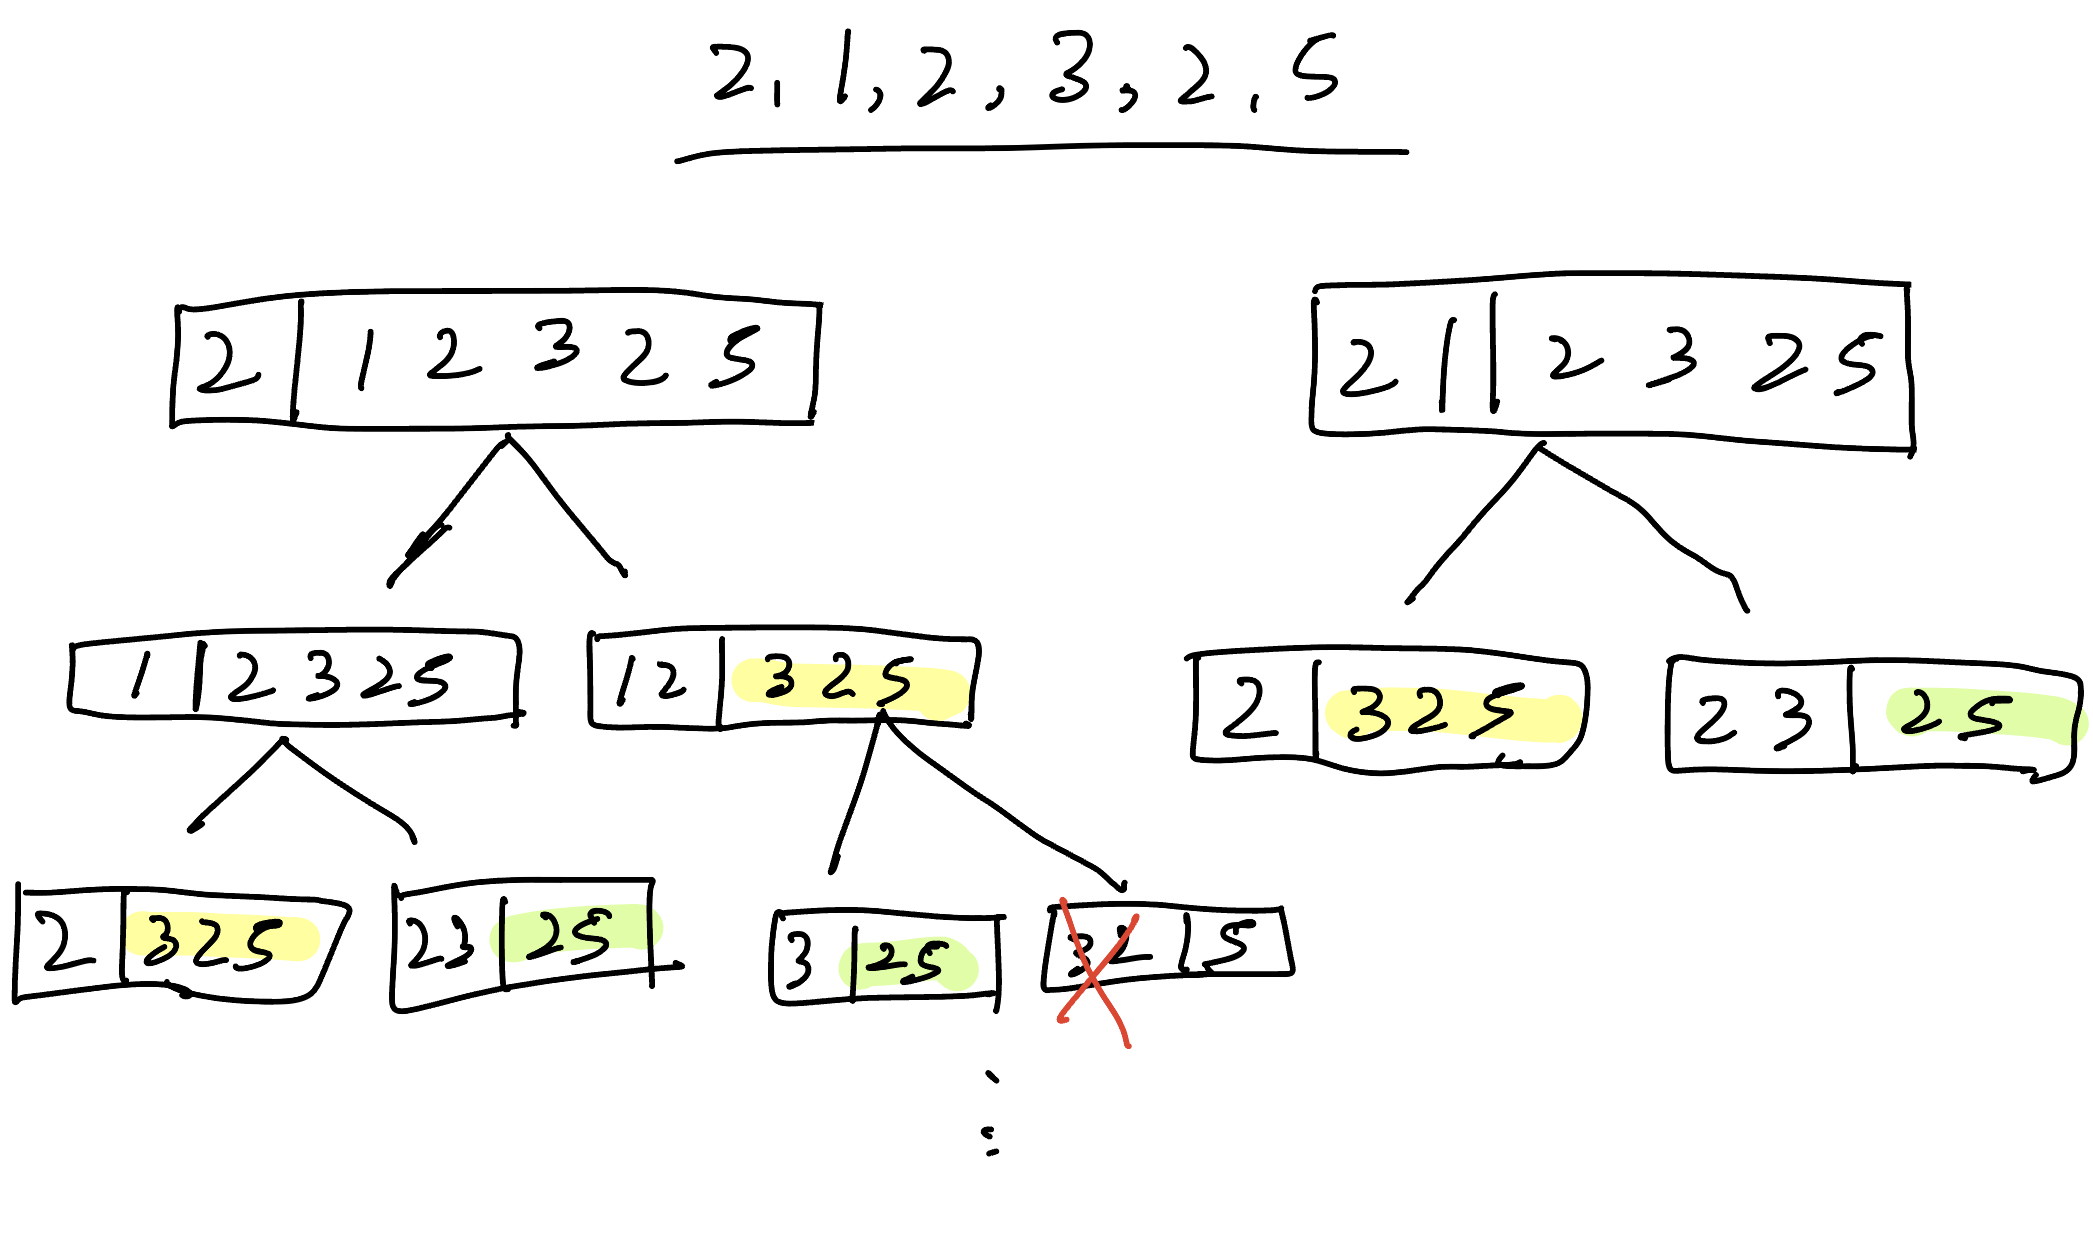 2, 1, 2, 3, 2, 5
2 | 1 2 3 2 5
2 1 | 2 3 2 5
1 | 2 3 2 5
1 2 | 3 2 5
2 | 3 2 5
2 3 | 2 5
2 | 3 2 5
2 3 | 2 5
3 | 2 5
3 2 | 5